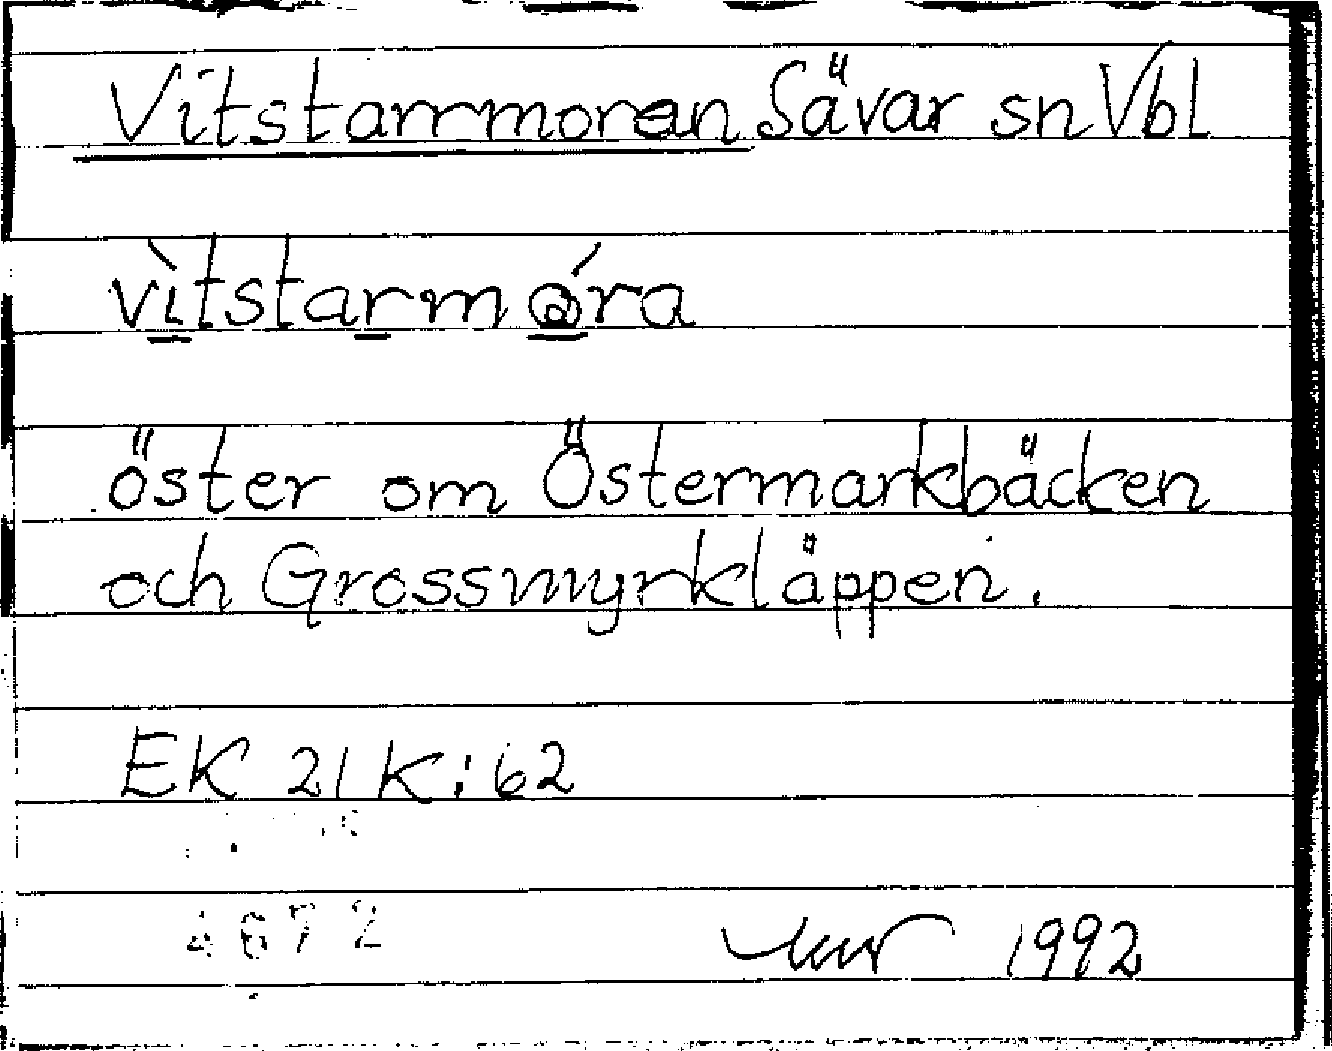 Vitstarrmoran Sävar sn Vbl
vìtstarmǻra
öster om Östermarkbäcken
och Grossmyrkläppen.
EK 21K:62
4672
1992